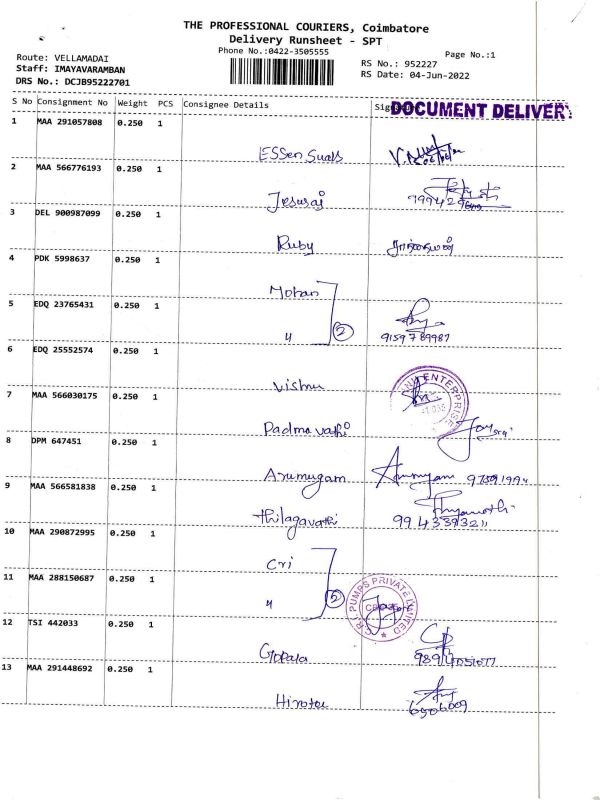 THE PROFESSIONAL COURIERS, Coimbatore
Delivery Runsheet - SPT
Phone No.:0422-3505555
Page No.:1
Route: VELLAMADAI
Staff: IMAYAVARAMBAN
DRS No.: DCJB95222701
RS No.: 952227
RS Date: 04-Jun-2022
S No Consignment No Weight PCS Consignee Details
DOCUMENT DELIVER
1 MAA 291057808 0.250 1
2 MAA 566776193 0.250 1 Jesuraj
3 DEL 900987099 0.250 1 Ruby
4 PDK 5998637 0.250 1 Mohan
5 EDQ 23765431 0.250 1 " 2 9159789987
6 EDQ 25552574 0.250 1 Vishnu ENTERPRISE
7 MAA 566030175 0.250 1 Padmavathi
8 DPM 647451 0.250 1 Arumugam
9 MAA 566581838 0.250 1 Thilagavathi
10 MAA 290872995 0.250 1 Cri
11 MAA 288150687 0.250 1 " C.R.I. PUMPS PRIVATE LIMITED
12 TSI 442033 0.250 1 Gopala
13 MAA 291448692 0.250 1